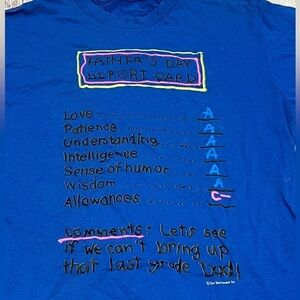 FATHER'S DAY
REPORT CARD
Love A
Patience A
Understanding A
Intelligence A
Sense of humor A
Wisdom A
Allowances C-
Comments: Lets see
if we can't bring up
that last grade Dad!